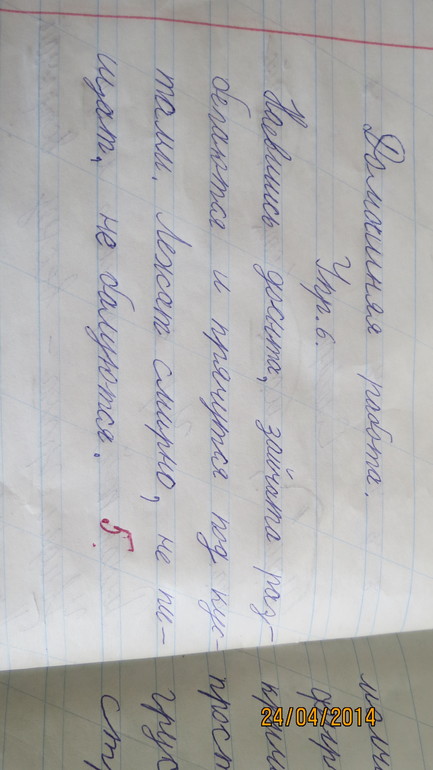 Домашняя работа.
Упр. 6.
Наевшись досыта, зайчата раз-
бегаются и прячутся под кус-
тами. Лежат смирно, не пи-
щат, не балуются.
5.
24/04/2014